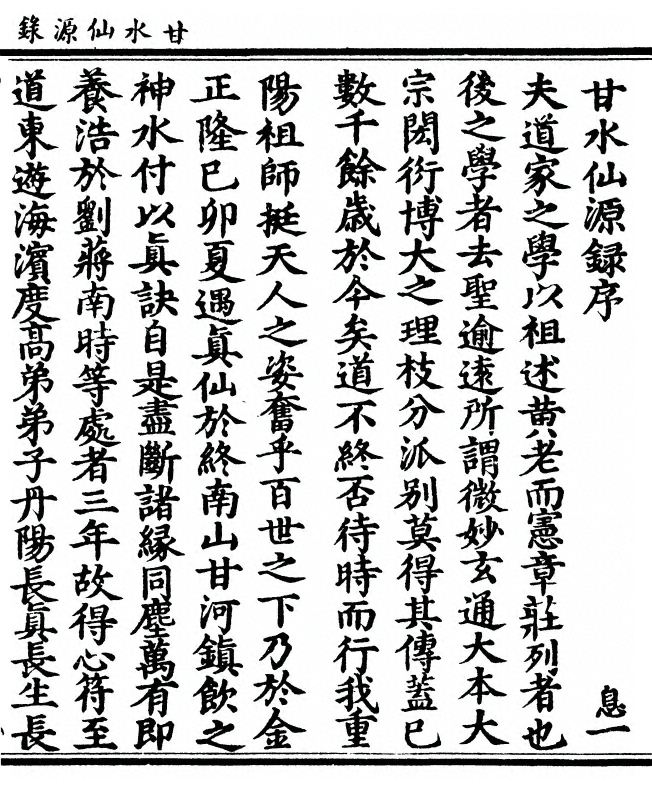 甘水仙源錄
甘水仙源録序
息一
夫道家之學以祖述黄老而憲章莊列者也
後之學者去聖逾遠所謂微妙玄通大本大
宗閎衍博大之理枝分派别莫得其傳蓋已
數千餘歳於今矣道不終否待時而行我重
陽祖師挺天人之姿奮乎百世之下乃於金
正隆已卯夏遇眞仙於終南山甘河鎮飲之
神水付以眞訣自是盡斷諸縁同塵萬有即
養浩於劉蔣南時等處者三年故得心符至
道東遊海濱度高弟弟子丹陽長眞長生長